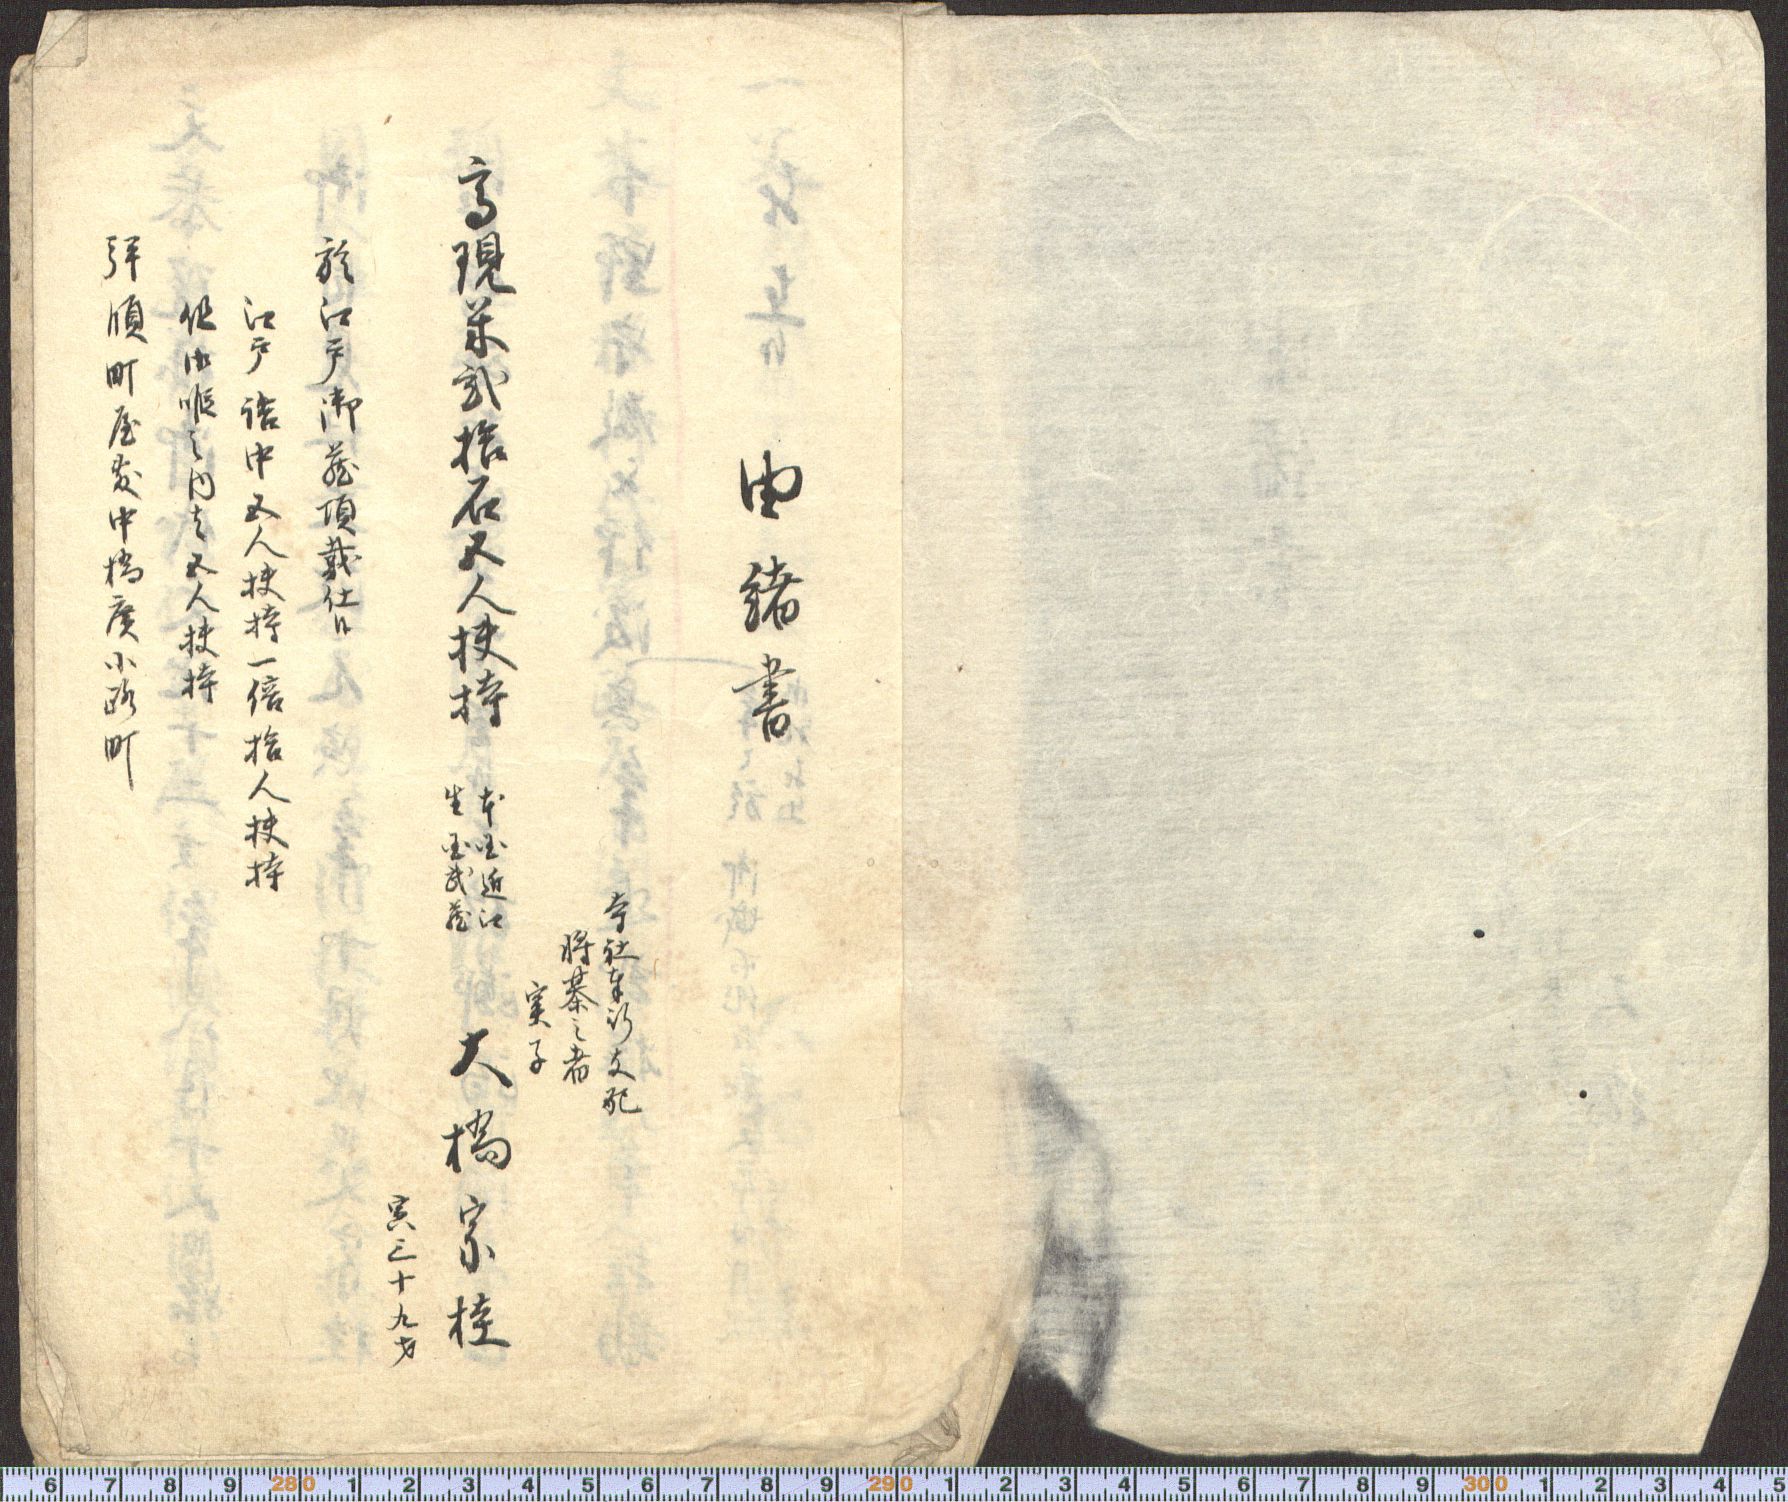 由緒書
寺社奉行支配
将棊之者
実子
高現米弐拾石五人扶持
本国近江
生国武蔵
大橋宗桂
寅三十九才
於江戸御蔵頂戴仕候
江戸詰中五人扶持一倍拾人扶持
但御暇之内者五人扶持
拝領町屋敷中橋広小路町
6 7 8 9 280 1 2 3 4 5 6 7 8 9 290 1 2 3 4 5 6 7 8 9 300 1 2 3 4 5